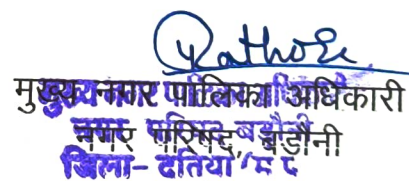 Rathore
मुख्य नगर पालिका अधिकारी
नगर परिषद, बडौनी
जिला- दतिया म प्र